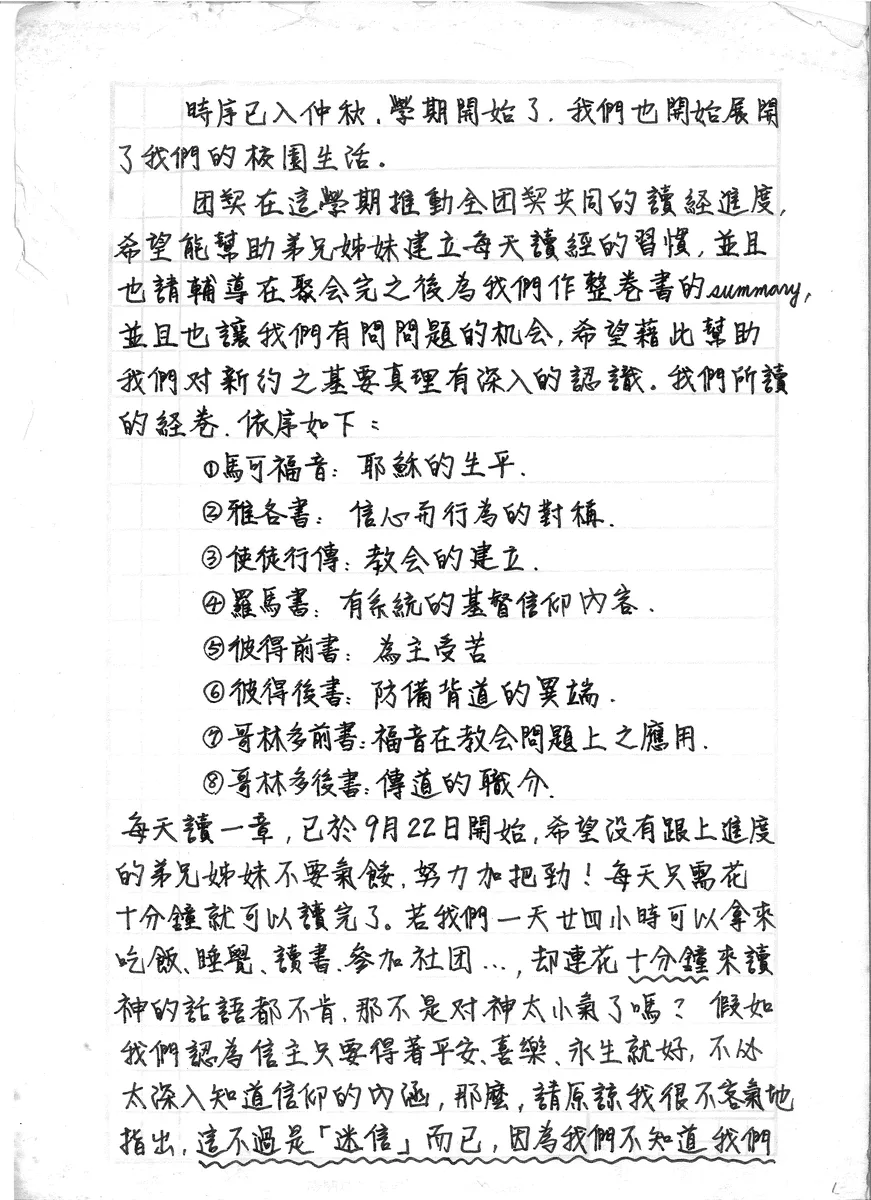 時序已入仲秋，學期開始了．我們也開始展開
了我們的校園生活。
团契在這學期推動全团契共同的讀経進度，
希望能幫助弟兄姊妹建立每天讀經的習慣，並且
也請輔導在聚会完之後為我們作整卷書的summary，
並且也讓我們有問問題的机会，希望藉此幫助
我們对新約之基要真理有深入的認識。我們所讀
的経卷．依序如下：
①馬可福音：耶穌的生平．
②雅各書：信心而行為的對稱．
③使徒行傳：教会的建立．
④羅馬書：有系統的基督信仰內容．
⑤彼得前書：為主受苦
⑥彼得後書：防備背道的異端．
⑦哥林多前書：福音在教会問題上之應用．
⑧哥林多後書：傳道的職分．
每天讀一章，已於9月22日開始，希望没有跟上進度
的弟兄姊妹不要氣餒，努力加把勁！每天只需花
十分鐘就可以讀完了。若我們一天廿四小時可以拿來
吃飯、睡覺、讀書、參加社团…，却連花十分鐘來讀
神的話語都不肯，那不是对神太小氣了嗎？假如
我們認為信主只要得著平安、喜樂、永生就好，不必
太深入知道信仰的內涵，那麼，請原諒我很不客氣地
指出，這不過是「迷信」而已，因為我們不知道我們